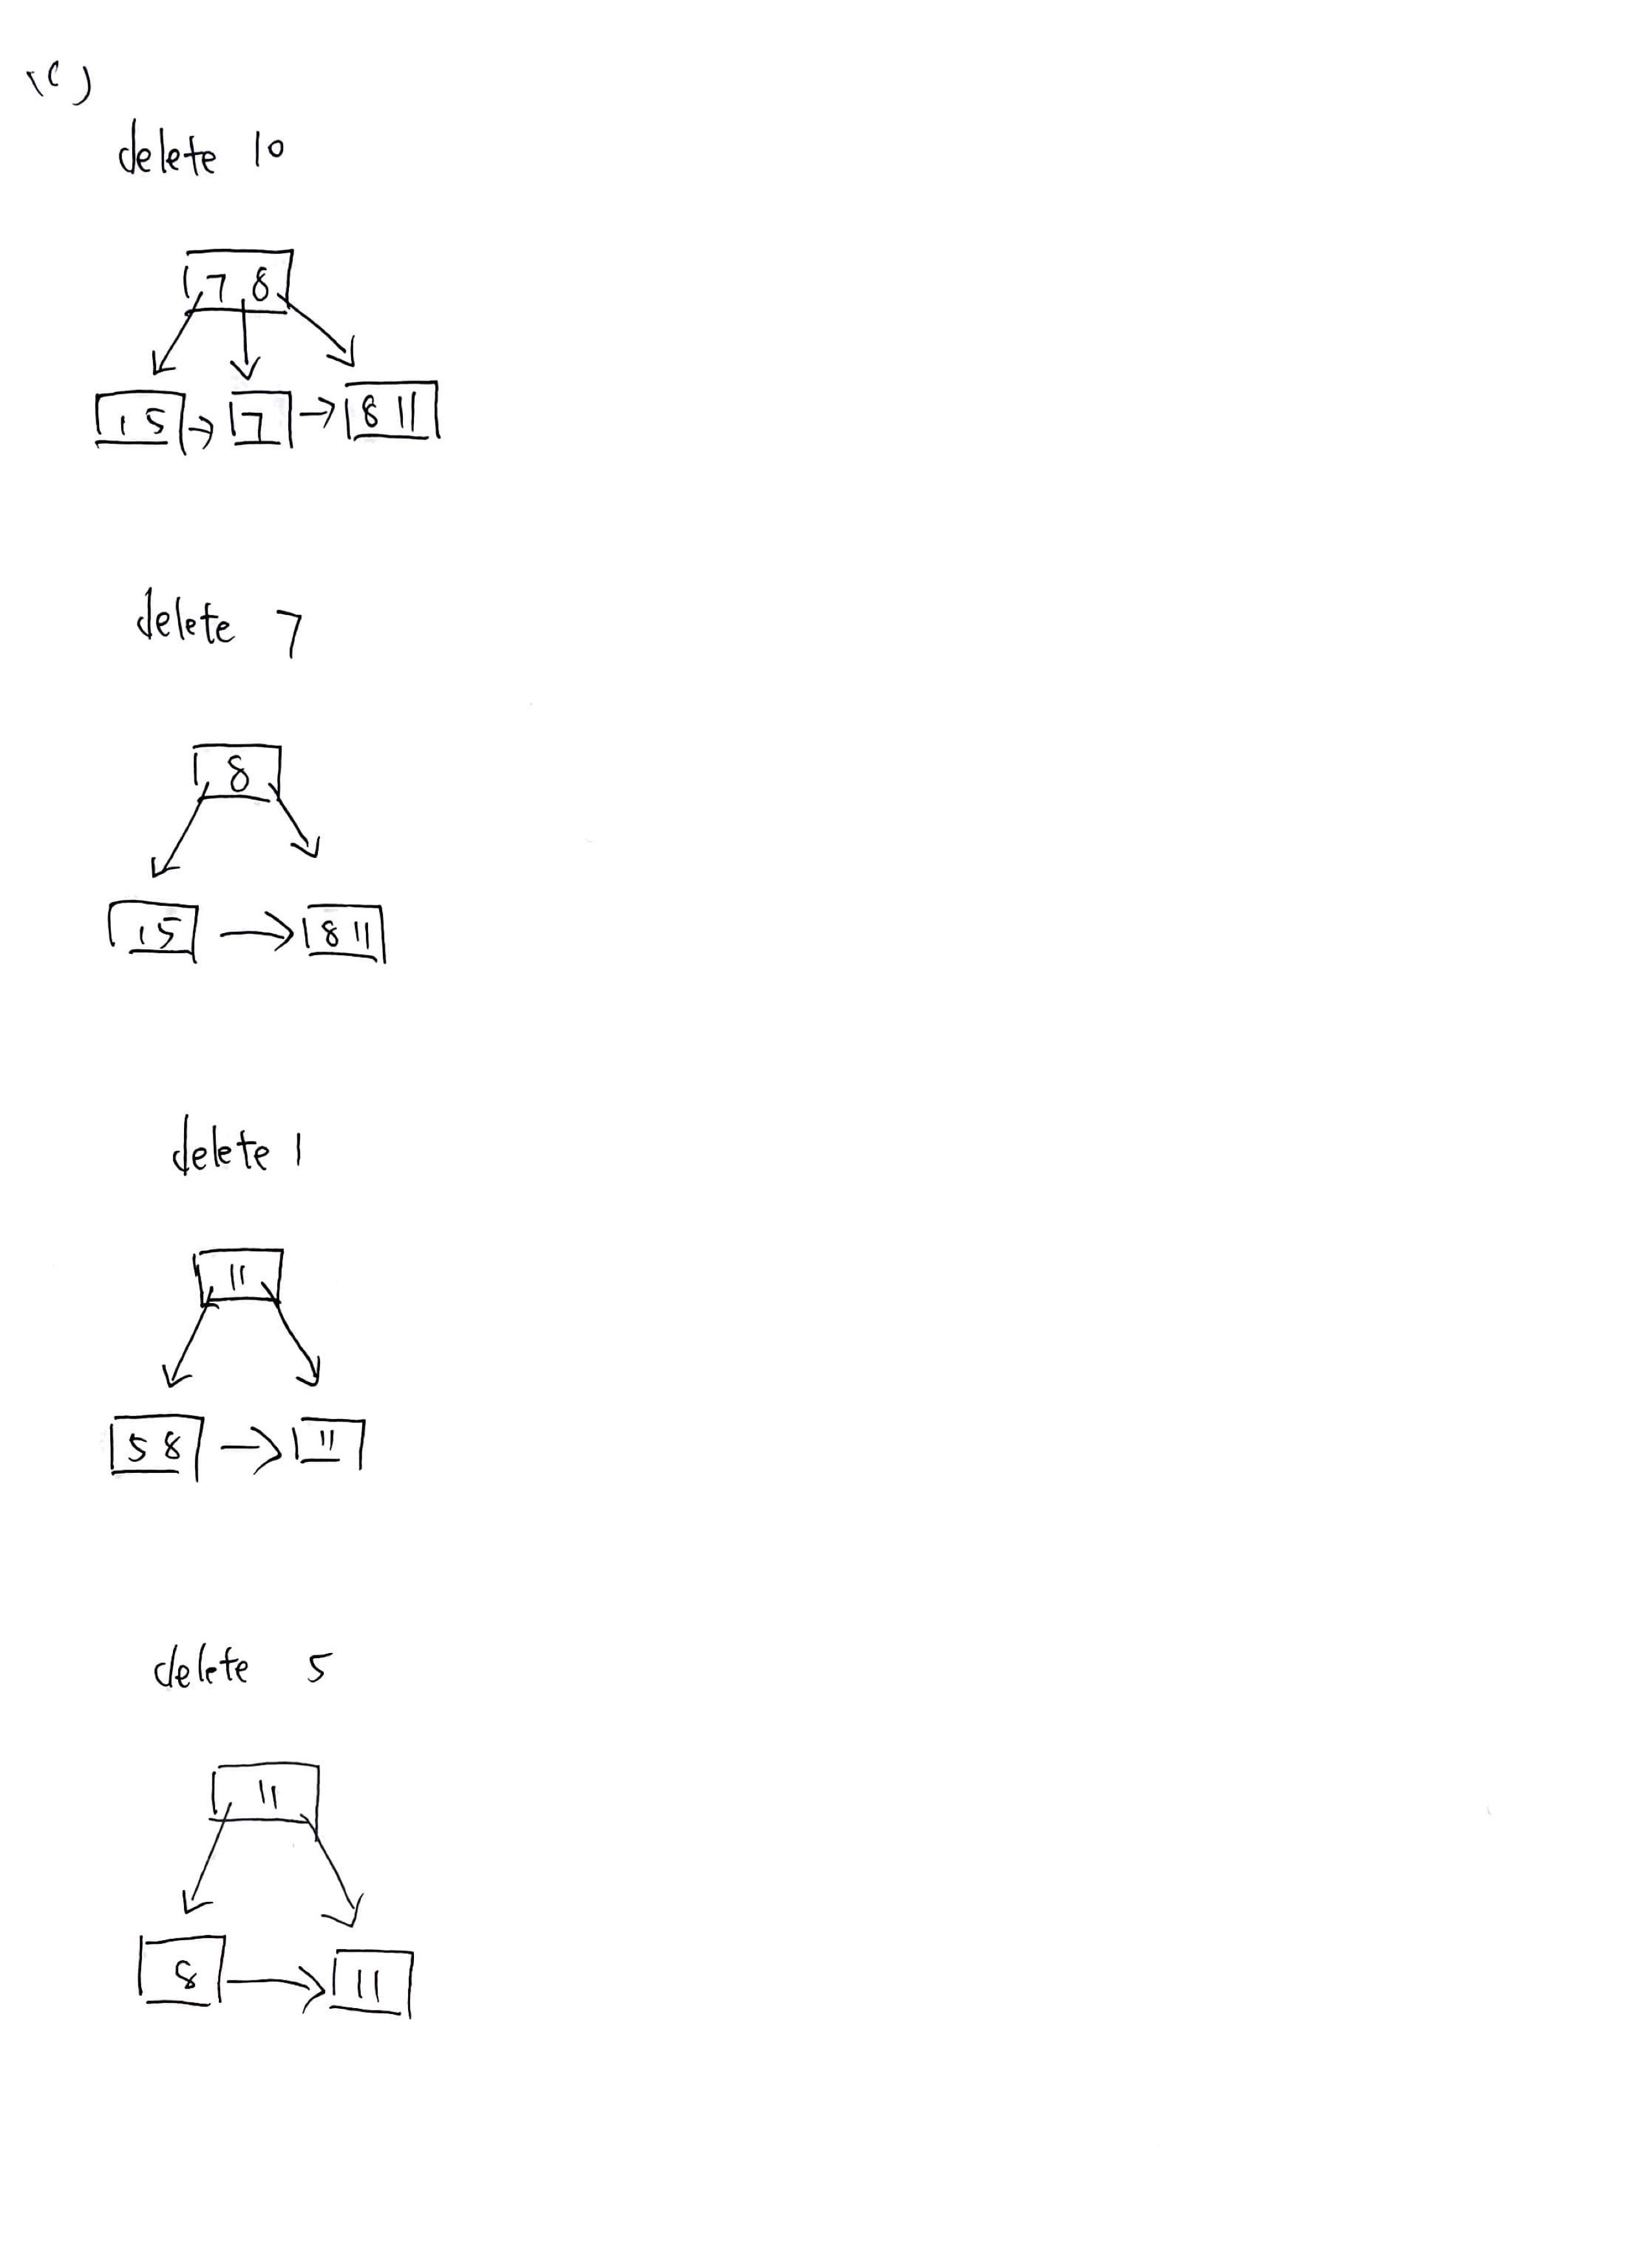 (c)
delete 10
7 8
1 5 → 7 → 8 11
delete 7
8
1 5 → 8 11
delete 1
11
5 8 → 11
delete 5
11
8 → 11